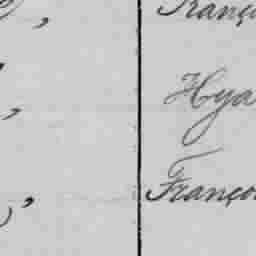 Franço
Hya
Franço